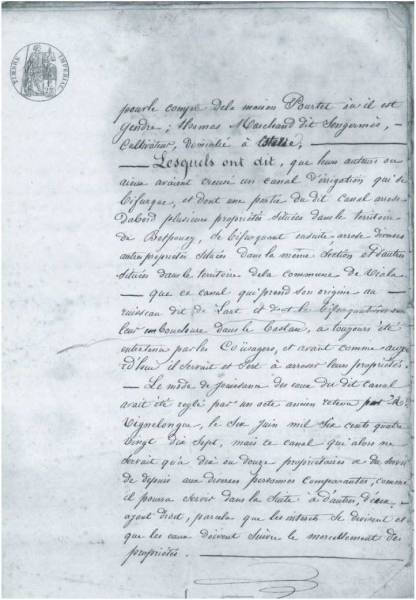 TIMBRE IMPERIAL
pour le compte de la maison Pourtet où il est
gendre; Thomas Marchand dit
Cultivateur, domicilié à
Lesquels ont dit, que leurs auteurs ou
aieux avaient creusé un canal d'irrigation qui se
bifurque, et dont une partie du dit canal arrose
Dabord plusieurs propriétés situées dans le territoire
de Betpouey, se bifurquant ensuite arrose diverses
autres propriétés situées dans la même section et d'autres
situées dans le territoire de la commune de Viela
que ce canal qui prend son origine au
ruisseau dit de Lart et dont la bifurcation
dans le Bastan, a toujours été
entretenu par les Cousagers, et avant comme aujour
d'hui il servait et sert à arroser leurs propriétés.
Le mode de jouissance des eaux du dit canal
avait été réglé par un acte ancien retenu par Me
Vignelongue, le six Juin mil six cent quatre
vingt dix sept, mais ce canal qui alors ne
servait qu'à dix ou douze propriétaires a du servir
de depuis aux diverses personnes comparantes, comme
il pourra servir dans la suite à d'autres
ayant droit, parcela que les intérêts se divisent et
que les eaux doivent suivre le morcellement des
propriétés.